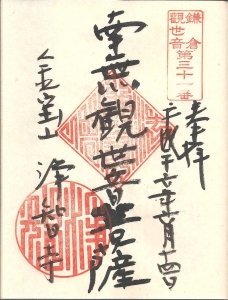 鎌倉
觀世音
第三十一番
奉拝
平成十六年六月十四日
南無観世音菩薩
金宝山 浄智寺